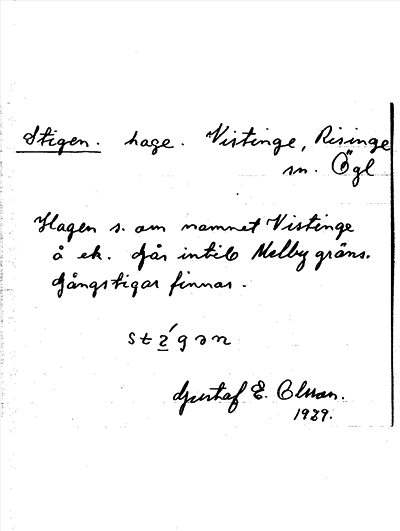 Stigen. hage. Vistinge, Risinge
sn. Ögl
Hagen s. om namnet Vistinge
å ek. Går intill Melby gräns.
Gångstigar finnas.
Gustaf E. Olsson.
1929.